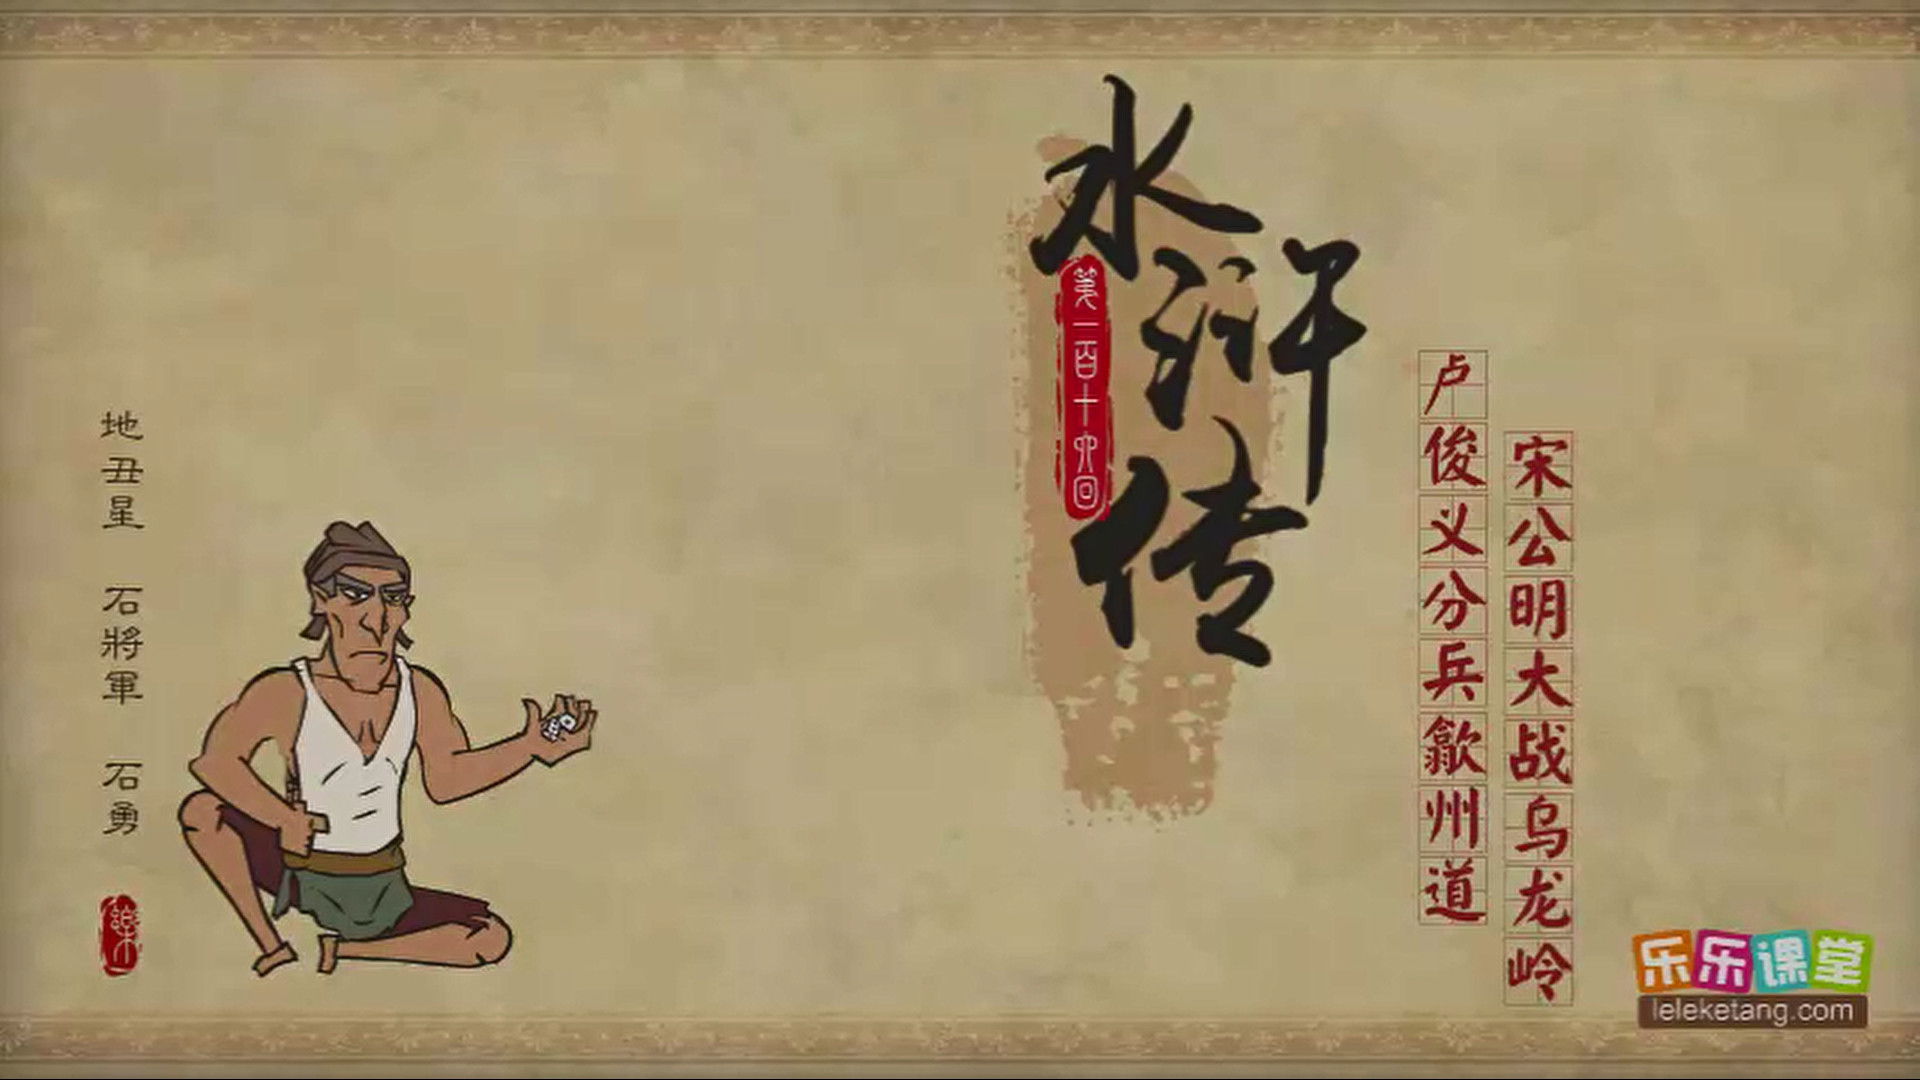 水浒传
第一百十六回
卢俊义分兵歙州道
宋公明大战乌龙岭
地丑星 石將軍 石勇
樂
乐乐课堂
leleketang.com